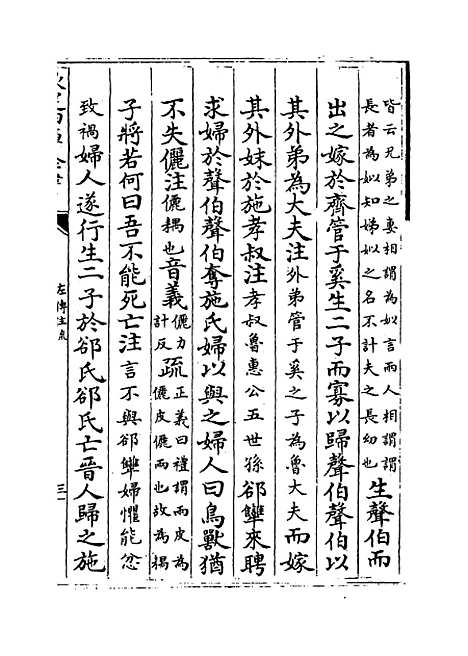 皆云兄弟之妻相謂為姒言兩人相謂謂
長者為姒知娣姒之名不計夫之長幼也
生聲伯而
出之嫁於齊管于奚生二子而寡以歸聲伯聲伯以
其外弟為大夫注外弟管于奚之子為魯大夫而嫁
其外妹於施孝叔注孝叔魯惠公五世孫郤犫來聘
求婦於聲伯聲伯奪施氏婦以與之婦人曰鳥獸猶
不失儷注儷耦也音義儷力計反疏正義曰禮謂兩皮為儷皮儷兩也故為耦
子將若何曰吾不能死亡注言不與郤犫婦懼能忿
致禍婦人遂行生二子於郤氏郤氏亡晉人歸之施
左傳注疏
三